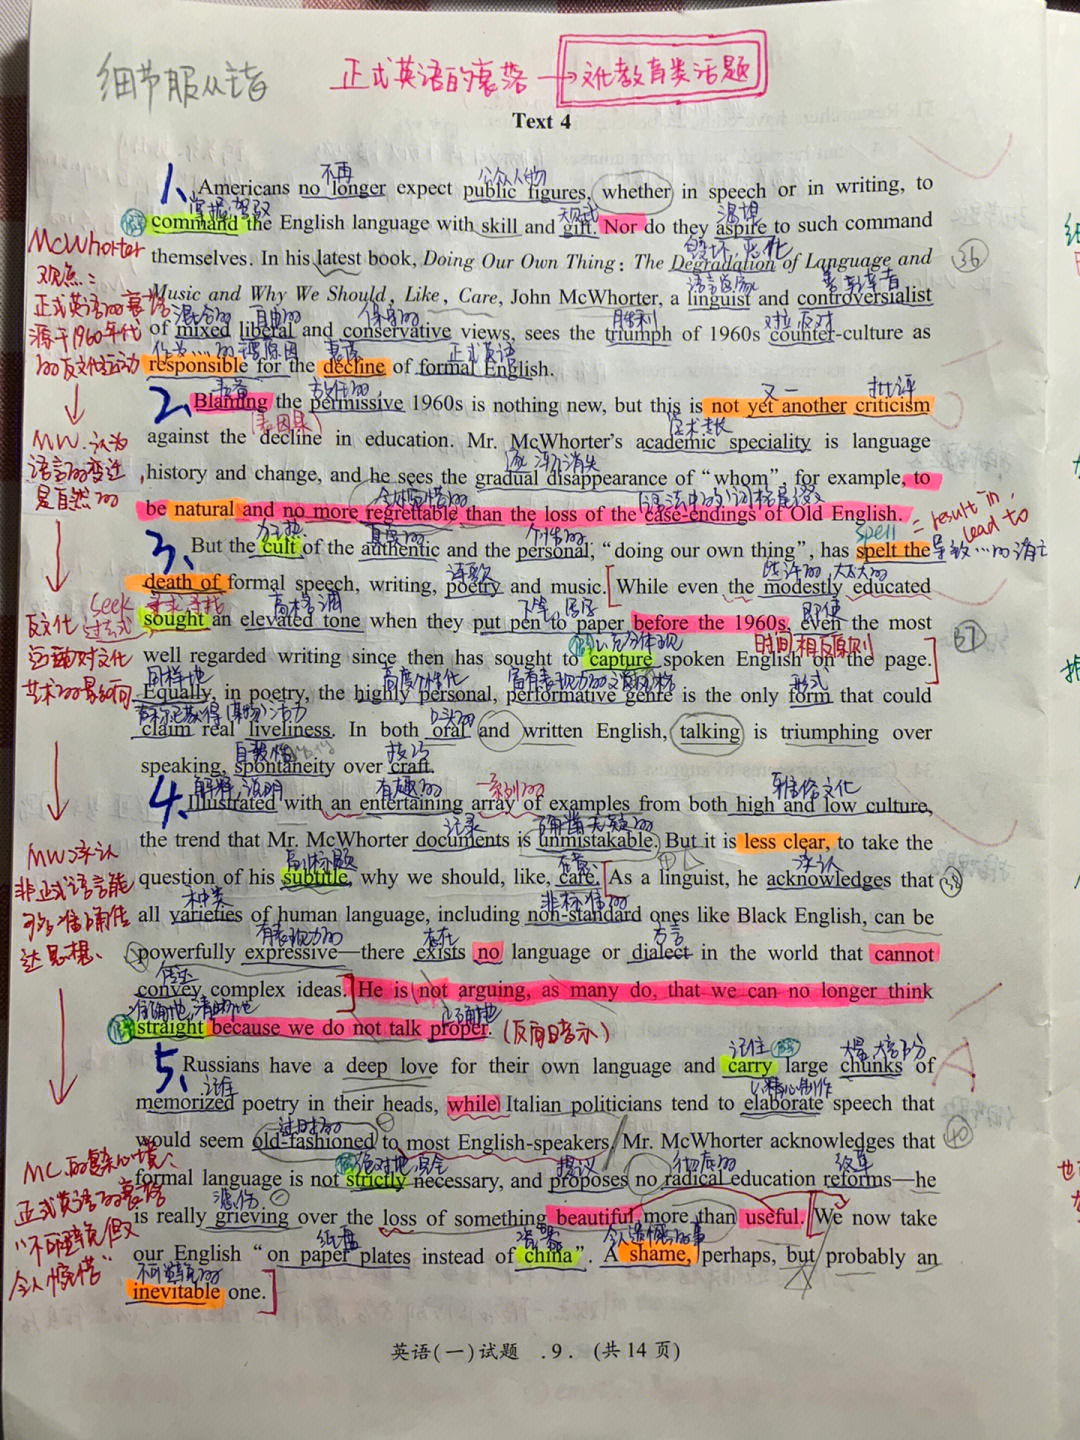 细节服从主旨
正式英语的衰落 → 文化教育类话题
Text 4
不再 公众人物
1、Americans no longer expect public figures, whether in speech or in writing, to
掌握 驾驭 天赋 渴望
command the English language with skill and gift. Nor do they aspire to such command
毁坏 恶化
themselves. In his latest book, Doing Our Own Thing: The Degradation of Language and
语言学家
Music and Why We Should, Like, Care, John McWhorter, a linguist and controversialist
混合的 自由的 保守的 胜利 对立 反对
of mixed liberal and conservative views, sees the triumph of 1960s counter-culture as
衰落 正式英语
responsible for the decline of formal English.
又一 批评
2、Blaming the permissive 1960s is nothing new, but this is not yet another criticism
学术专长
against the decline in education. Mr. McWhorter's academic speciality is language
逐渐消失
history and change, and he sees the gradual disappearance of "whom", for example, to
令人惋惜的
be natural and no more regrettable than the loss of the case-endings of Old English.
= result in, lead to
spell
真实的 个性的
3、But the cult of the authentic and the personal, "doing our own thing", has spelt the
诗歌
death of formal speech, writing, poetry and music. While even the modestly educated
seek 寻求 寻找 过去式 高格调 下笔 写字 即使
sought an elevated tone when they put pen to paper before the 1960s, even the most
充分体现 时间相反原则
well regarded writing since then has sought to capture spoken English on the page.
同样地 高度个性化 形式
Equally, in poetry, the highly personal, performative genre is the only form that could
口头的
claim real liveliness. In both oral and written English, talking is triumphing over
自发性 技巧
speaking, spontaneity over craft.
解释, 说明 有趣的 一系列的 雅俗文化
4、Illustrated with an entertaining array of examples from both high and low culture,
记录 确凿无疑的
the trend that Mr. McWhorter documents is unmistakable. But it is less clear, to take the
副标题 在意 承认
question of his subtitle, why we should, like, care. As a linguist, he acknowledges that
种类 非标准的
all varieties of human language, including non-standard ones like Black English, can be
有表现力的 存在 方言
powerfully expressive—there exists no language or dialect in the world that cannot
传达
convey complex ideas. He is not arguing, as many do, that we can no longer think
正确地
straight because we do not talk proper. (反向暗示)
记住 大量 大部分
5、Russians have a deep love for their own language and carry large chunks of
记住 精心制作
memorized poetry in their heads, while Italian politicians tend to elaborate speech that
过时的
would seem old-fashioned to most English-speakers. Mr. McWhorter acknowledges that
绝对地 完全 提议 彻底的 改革
formal language is not strictly necessary, and proposes no radical education reforms—he
悲伤
is really grieving over the loss of something beautiful more than useful. We now take
纸盘 瓷器 令人遗憾的事
our English "on paper plates instead of china". A shame, perhaps, but probably an
不可避免的
inevitable one.
McWhorter
观点:
正式英语的衰落
源于1960年代
的反文化运动
MW.认为
语言的变迁
是自然的
反文化
运动对文化
艺术的影响
MW承认
非正式语言能
够准确传
达思想、
正式英语的衰落
"不可避免但又
令人惋惜"
36
37
38
40
英语(一)试题 .9. (共14页)